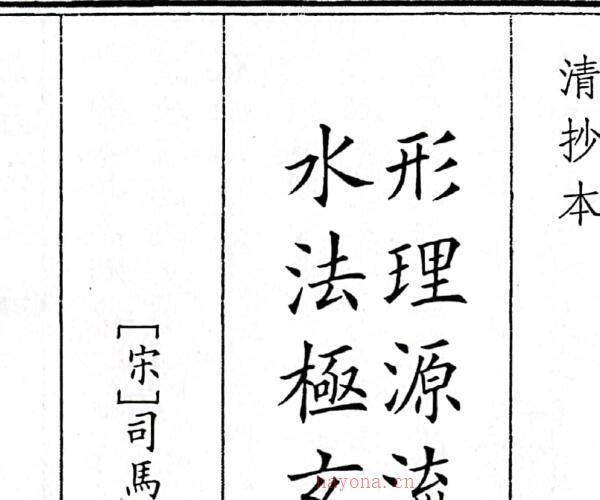 清抄本
形理源流
水法極玄
[宋]司馬
nayona.cn